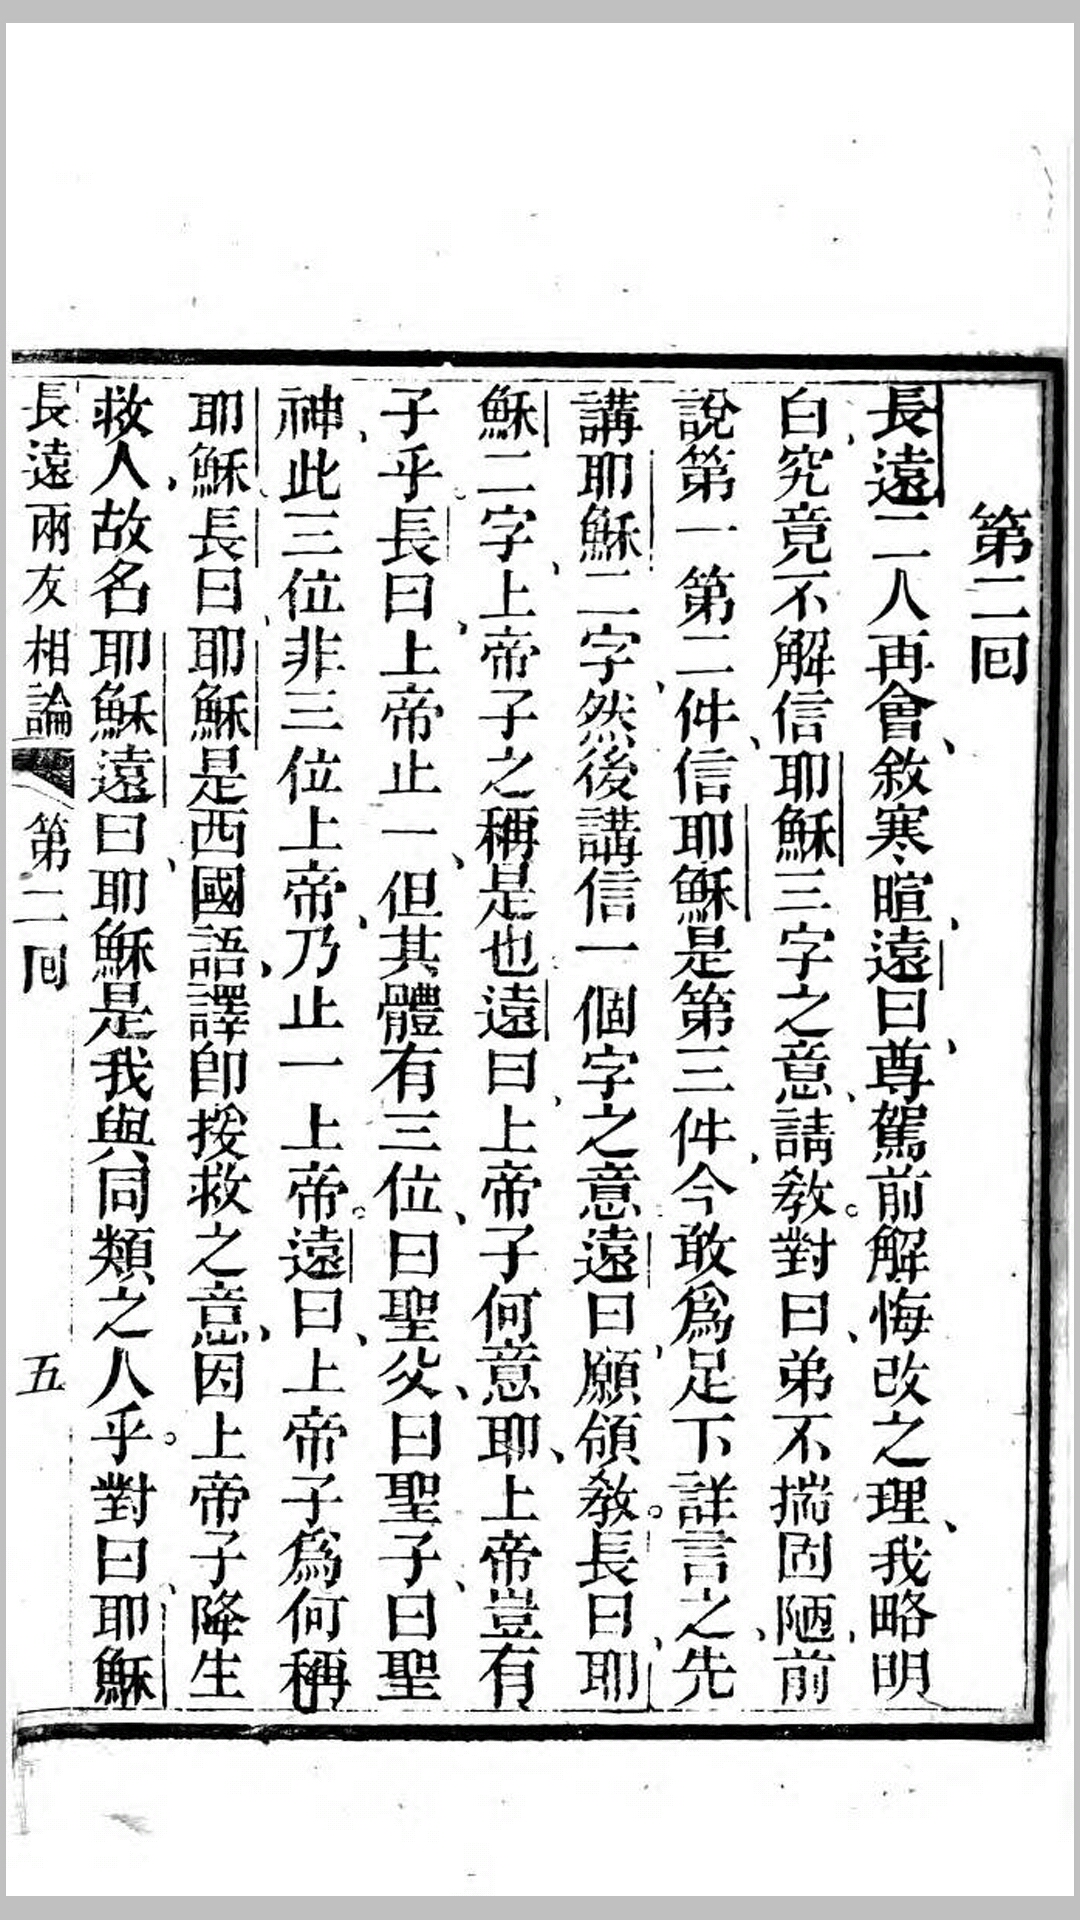 第二回
長遠二人再會、敘寒暄、遠曰、尊駕前解悔改之理、我略明
白、究竟不解信耶穌三字之意、請教。對曰、弟不揣固陋、前
說第一第二件、信耶穌是第三件、今敢爲足下詳言之、先
講耶穌二字、然後講信一個字之意、遠曰、願領教。長曰、耶
穌二字、上帝子之稱是也、遠曰、上帝子何意耶、上帝豈有
子乎。長曰、上帝止一、但其體有三位、曰聖父、曰聖子、曰聖
神、此三位非三位上帝、乃止一上帝。遠曰、上帝子爲何稱
耶穌、長曰、耶穌是西國語、譯卽拯救之意、因上帝子降生
救人、故名耶穌、遠曰、耶穌是我與同類之人乎。對曰、耶穌
長遠兩友相論 第二回 五